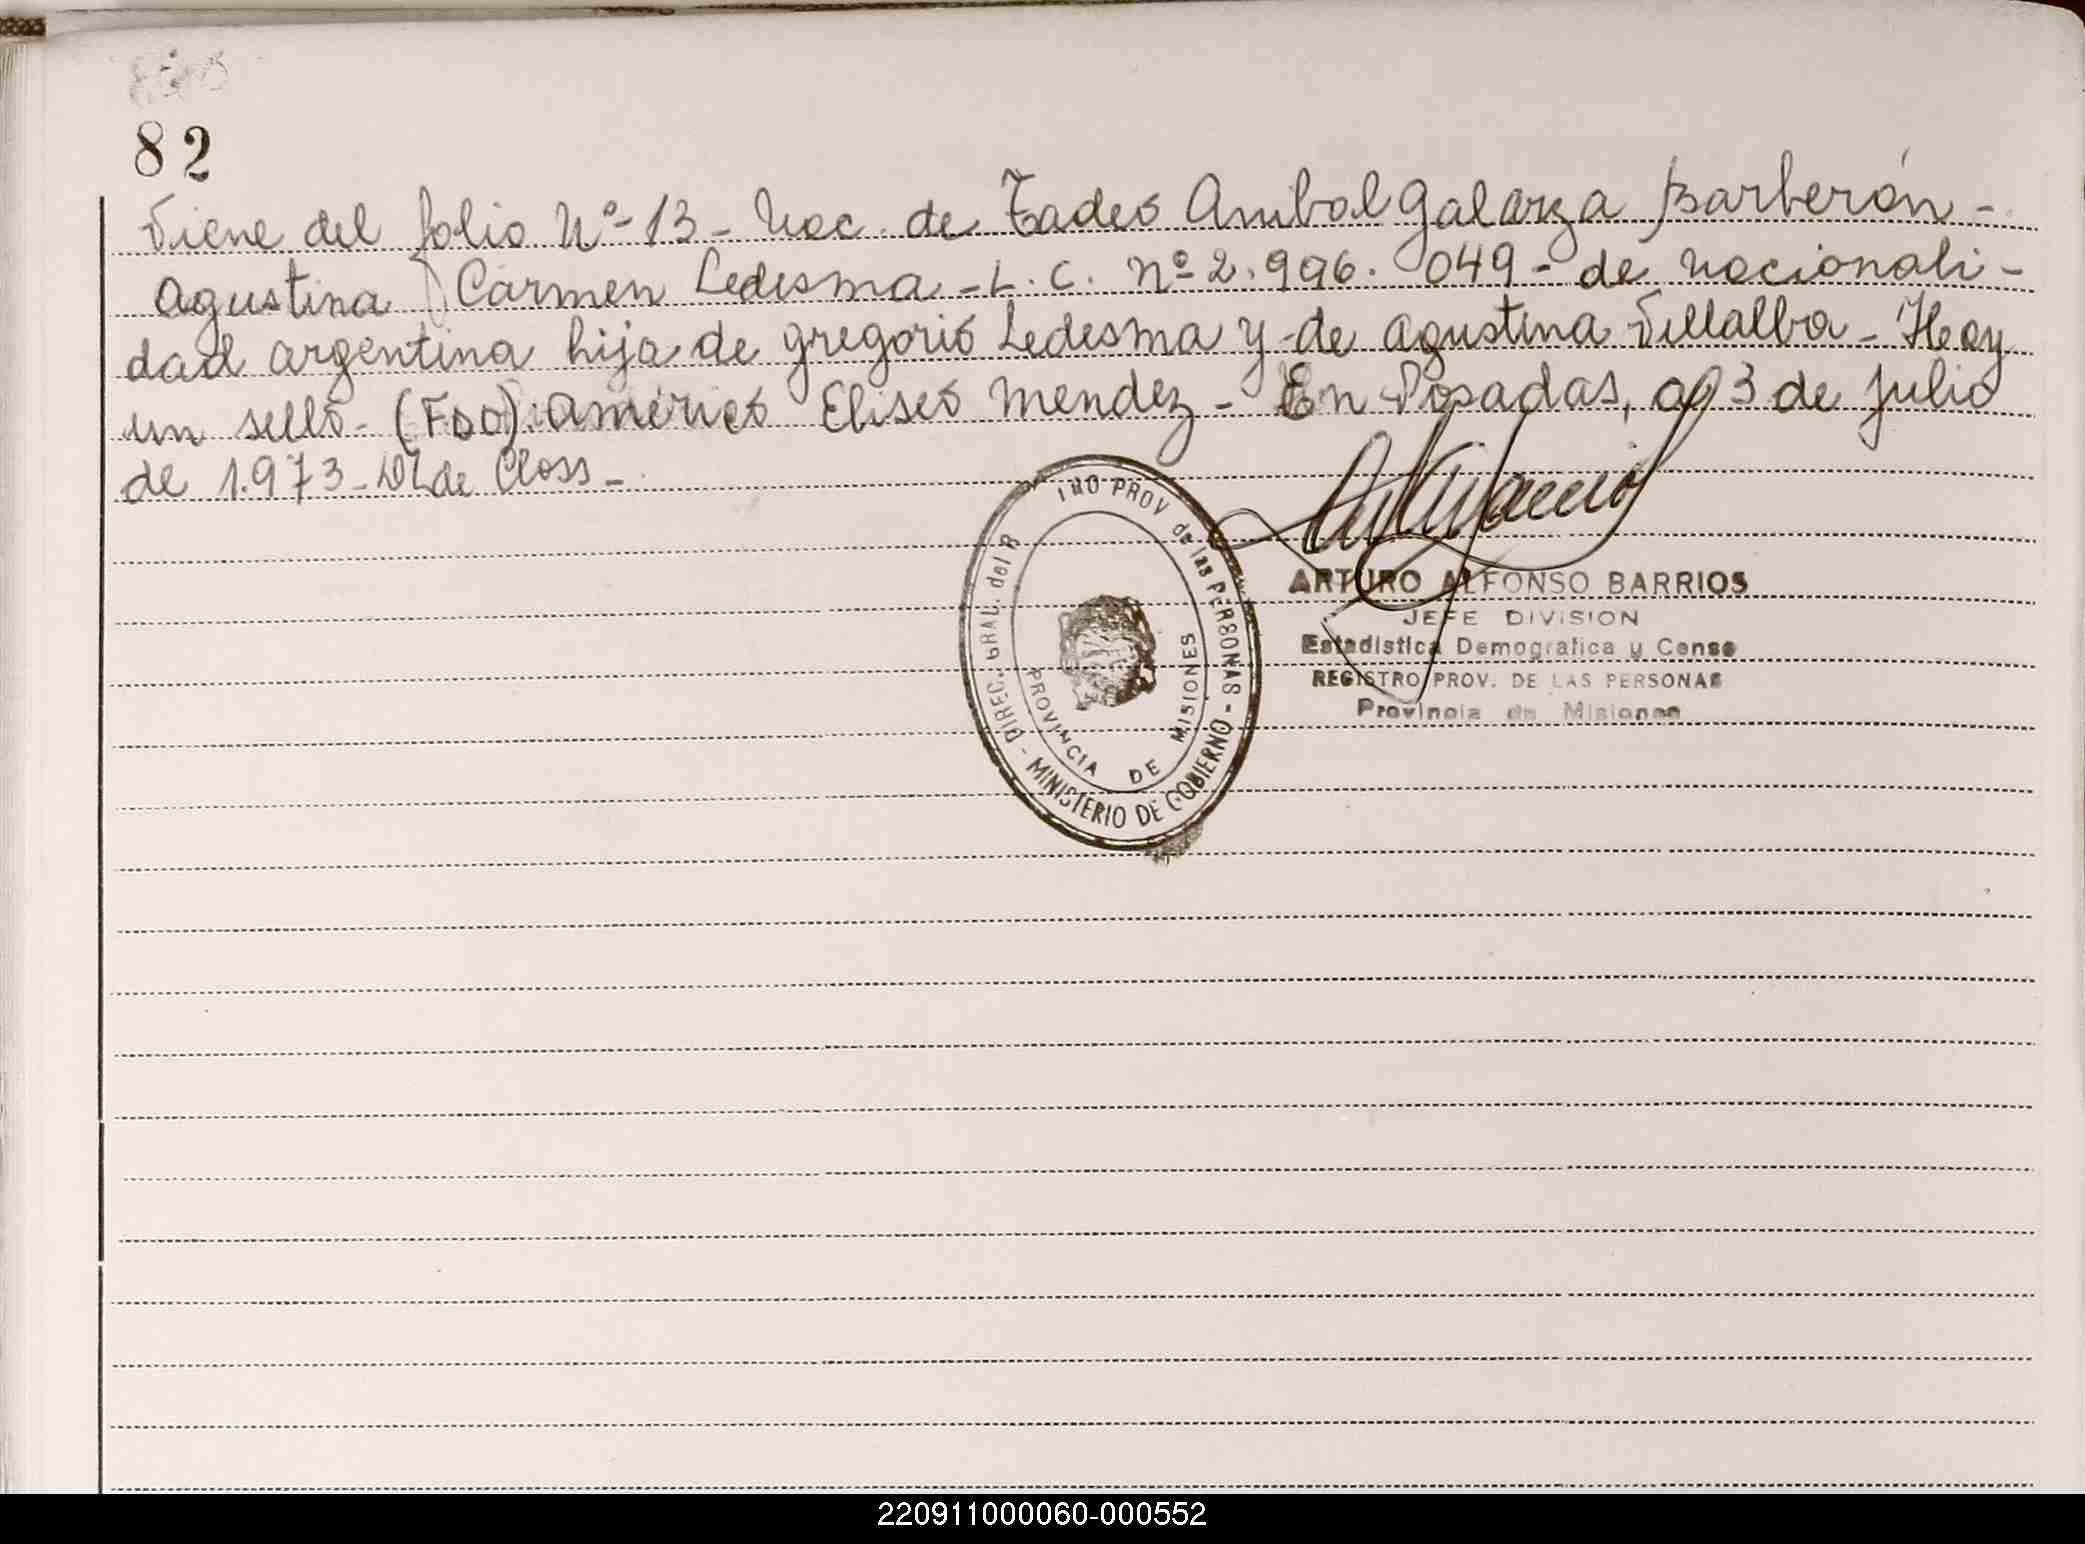 82
Viene del folio Nº-13- Nac. de Tadeo Anibal Galarza Barberón-
Agustina Carmen Ledesma-L.C. Nº2.996.049- de nacionali-
dad argentina hija de Gregorio Ledesma y de Agustina Villalba- Hay
un sello- (FDO): Américo Eliseo Mendez- En Posadas, a 3 de Julio
de 1.973- de Closs-
DIREC. GRAL. del R PROV de las PERSONAS - MINISTERIO DE GOBIERNO -
PROVINCIA DE MISIONES
ARTURO ALFONSO BARRIOS
JEFE DIVISION
Estadistica Demografica y Censo
REGISTRO PROV. DE LAS PERSONAS
Provincia de Misiones
220911000060-000552